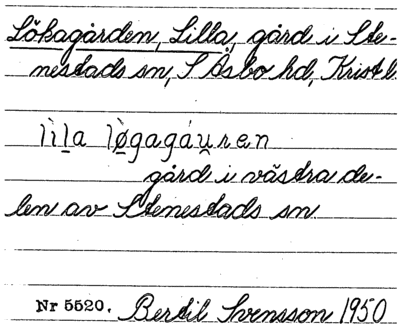 Lökagården, Lilla, gård i Ste-
nestads sn, S Åsbo hd, Kristl.
lìla lø̀gagáu̯ren
gård i västra de-
len av Stenestads sn
Nr 5520. Bertil Svensson 1950